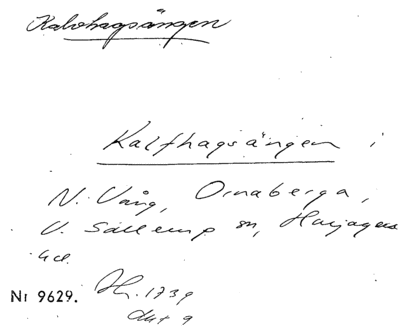 Kalvhagsängen
Kalfhagsängen i
N. Vång, Ornaberga,
V. Sallerup sn, Harjagers
hd.
Nr 9629. Hr. 1739
akt 9